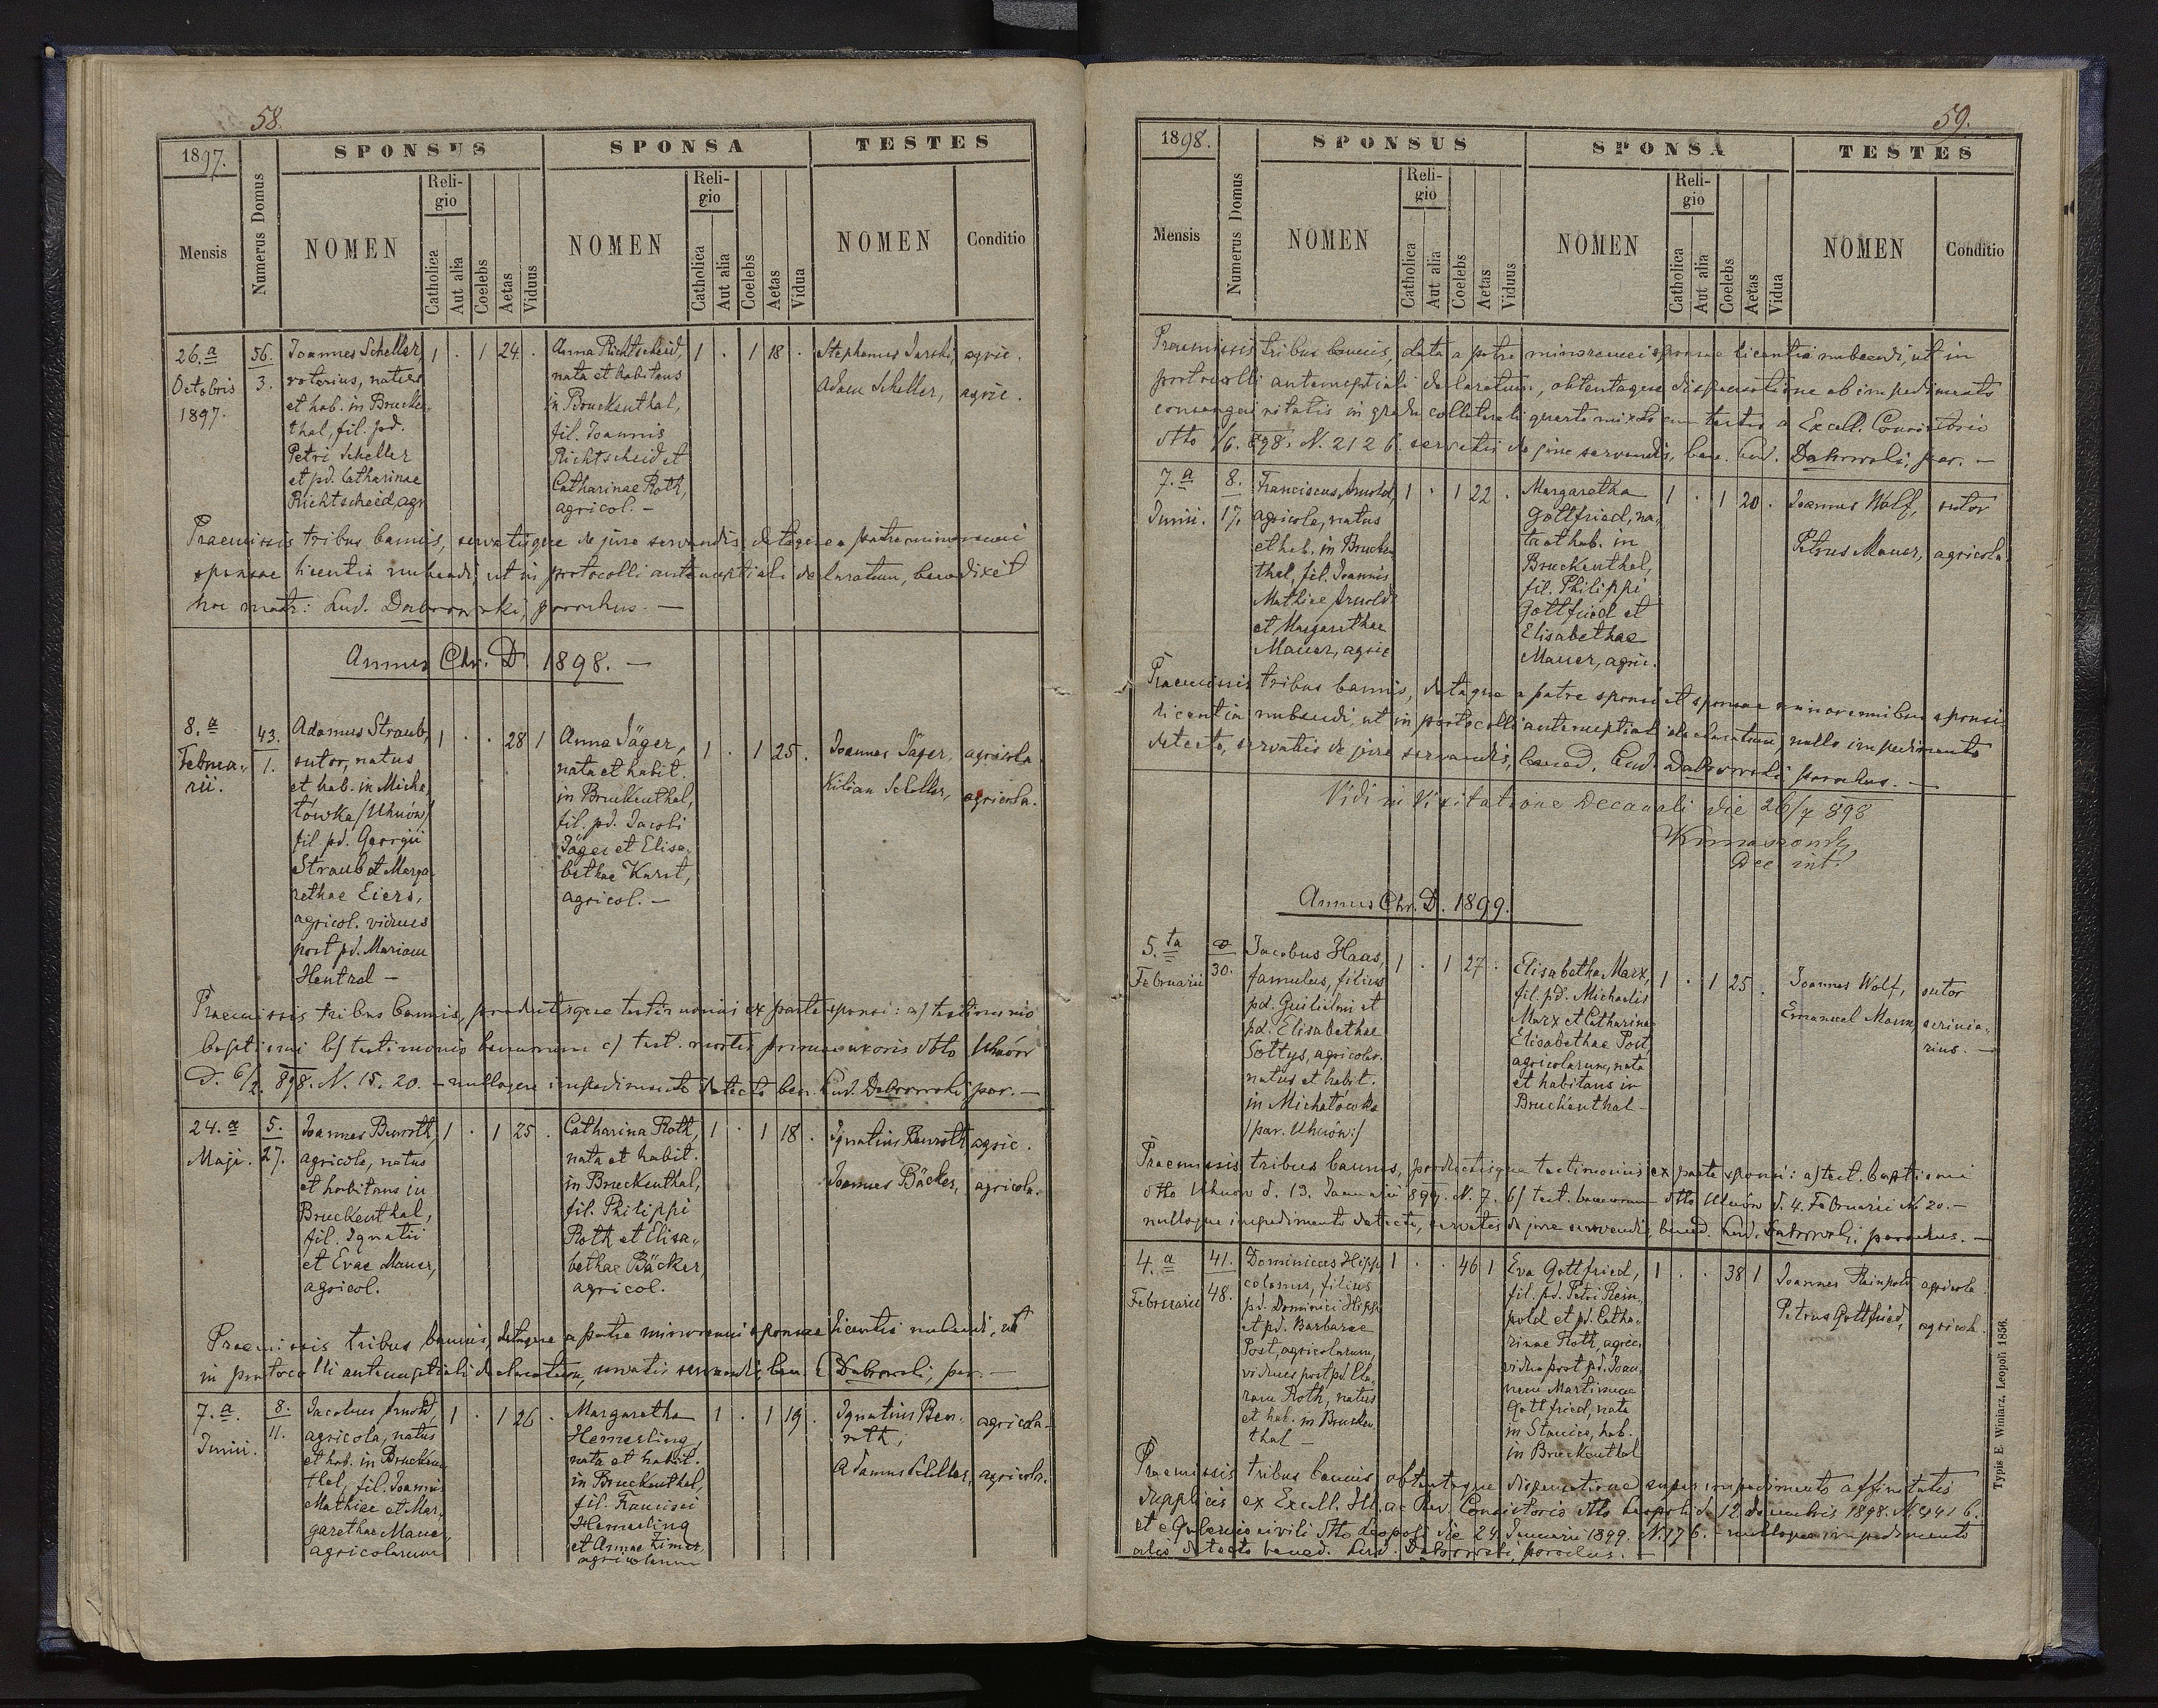 58.
1897.
SPONSUS
SPONSA
TESTES
Mensis
Numerus Domus
NOMEN
Reli-
gio
Catholica
Aut alia
Coelebs
Aetas
Viduus
NOMEN
Reli-
gio
Catholica
Aut alia
Coelebs
Aetas
Vidua
NOMEN
Conditio
26.a
Octobris
1897.
56.
3.
Joannes Scheller,
rotarius, natus
et hab. in Brucken
thal, fil. pd.
Petri Scheller
et pd. Catharinae
Richtscheid, agr
1 . 1 24 .
Anna Richtscheid,
nata et habitans
in Bruckenthal,
fil. Joannis
Richtscheid et
Catharinae Roth,
agricol. —
1 . 1 18 .
Stephanus agric.
Adam Scheller, agric.
Praemissis tribus bannis, servatisque de jure servandis, dataque a patre minorenni
sponsae licentia nubendi, ut in protocolli antenuptiali declaratum, benedixit
hoc matr: Lud. Dabrowski, parochus. —
Annus Chr. D. 1898. —
8.a
Februa-
rii.
43.
1.
Adamus Straub,
sutor, natus
et hab. in Micha
łówka /Uhnów/
fil pd. Georgii
Straub et Marga-
rethae Eiers,
agricol. viduus
post pd. Mariam
Hentral —
1 . . 28 1
Anna Jäger,
nata et habit.
in Bruckenthal,
fil. pd. Jacobi
Jäger et Elisa-
bethae Kurst,
agricol. —
1 . 1 25 .
Joannes Jäger, agricola
Kilian Scheller, agricola.
Praemissis tribus bannis, productisque testimoniis ex parte sponsi: a) testimonio
baptismi b) testimonio bannorum c) test. mortis primae uxoris dtto Uhnów
D. 6/2. 898. N. 15. 20. — nulloque impedimento detecto ben. Lud. Dabrowski, par. —
24.a
Maji.
5.
27.
Joannes Benroth,
agricola, natus
et habitans in
Bruckenthal,
fil. Ignatii
et Evae Mauer,
agricol.
1 . 1 25 .
Catharina Roth,
nata et habit.
in Bruckenthal,
fil. Philippi
Roth et Elisa-
bethae Bäcker,
agricol.
1 . 1 18 .
Ignatius Benroth agric.
Joannes Bäcker, agricola.
Praemissis tribus bannis, dataque a patre minorenni sponsae licentia nubendi, ut
in protocolli antenuptiali declaratum, servatis servandis, ben. L Dabrowski, par. —
7.a.
Junii.
8.
11.
Jacobus Arnold,
agricola, natus
et hab. in Brucken-
thal, fil. Joannis
Mathiae et Mar-
garethae Mauer,
agricolarum
1 . 1 26 .
Margaretha
Hemerling,
nata et habit.
in Bruckenthal,
fil. Francisci
Hemerling
et Annae Zimer,
agricolarum
1 . 1 19 .
Ignatius Ben- agricola.
roth;
Adamus Scheller, agricola.
59.
1898.
SPONSUS
SPONSA
TESTES
Mensis
Numerus Domus
NOMEN
Reli-
gio
Catholica
Aut alia
Coelebs
Aetas
Viduus
NOMEN
Reli-
gio
Catholica
Aut alia
Coelebs
Aetas
Vidua
NOMEN
Conditio
Praemissis tribus bannis, data a patre minorenni sponsae licentia nubendi, ut in
protocolli antenuptiali declaratum, obtentaque dispensatione ab impedimento
consanguinitatis in gradu collaterali quarto mixto cum tertio a Excell. Consistorio
dtto 1/6. 898. N. 2126. servatis de jure servandis, ben. Lud. Dabrowski, par. —
7.a
Junii.
8.
17.
Franciscus Arnold,
agricola, natus
et hab. in Brucken
thal, fil. Joannis
Mathiae Arnold
et Margarethae
Mauer, agric
1 . 1 22 .
Margaretha
Gottfried, na-
ta et hab. in
Bruckenthal,
fil. Philippi
Gottfried et
Elisabethae
Mauer, agric.
1 . 1 20 .
Joannes Wolf, sutor
Petrus Mauer, agricola
Praemissis tribus bannis, dataque a patre sponsi et sponsae minorennibus sponsis
licentia nubendi, ut in protocolli antenuptiali declaratum, nullo impedimento
detecto, servatis de jure servandis, bened. Lud. Dabrowski parochus. —
Vidi in Visitatione Decanali die 26/7 898
Dec int.
Annus Chr. D. 1899.
5.ta
Februarii
30.
Jacobus Haas,
famulus, filius
pd. Guilielmi et
pd. Elisabethae
Sołtys, agricolar.
natus et habit.
in Michałówka
/par. Uhnów:/
1 . 1 27 .
Elisabetha Marx,
fil. pd. Michaelis
Marx et Catharinae
Elisabethae Post,
agricolarum, nata
et habitans in
Bruckenthal —
1 . 1 25 .
Joannes Wolf, sutor
Emanuel Maum, scrinia-
rius. —
Praemissis tribus bannis, productisque testimoniis ex parte sponsi: a) test. baptismi
dtto Uhnów d. 13. Januarii 899. N. 7. b) test. bannorum dtto Uhnów d. 4. Februarii N. 20. —
nulloque impedimento detecto, servatis de jure servandis, bened. Lud. Dabrowski, parochus. —
4.a
Februarii
41.
48.
Dominicus Hipp
colonus, filius
pd. Dominici Hipp
et pd. Barbarae
Post, agricolarum,
viduus post pd. Cla-
ram Roth, natus
et hab. in Brucken
thal —
1 . . 46 1
Eva Gottfried,
fil. pd. Petri Rein-
pold et pd. Catha-
rinae Roth, agric.
vidua post pd. Joan-
nem Martinum
Gottfried, nata
in Stanica, hab.
in Bruckenthal
1 . . 38 1
Joannes Reinpold agricola
Petrus Gottfried, agricola.
Praemissis tribus bannis, obtentaque dispensatione super impedimento affinitatis
duplicis ex Excell. Ill. ac Rev. Consistorio dtto Leopoli de 12 Decembris 1898. N. 4416.
et e Gubernio civili dtto Leopoli die 24 Januarii 1899. N. 176. — nulloque impedimento
alio detecto bened. Lud. Dabrowski, parochus. —
Typis E. Winiarz. Leopoli 1856.